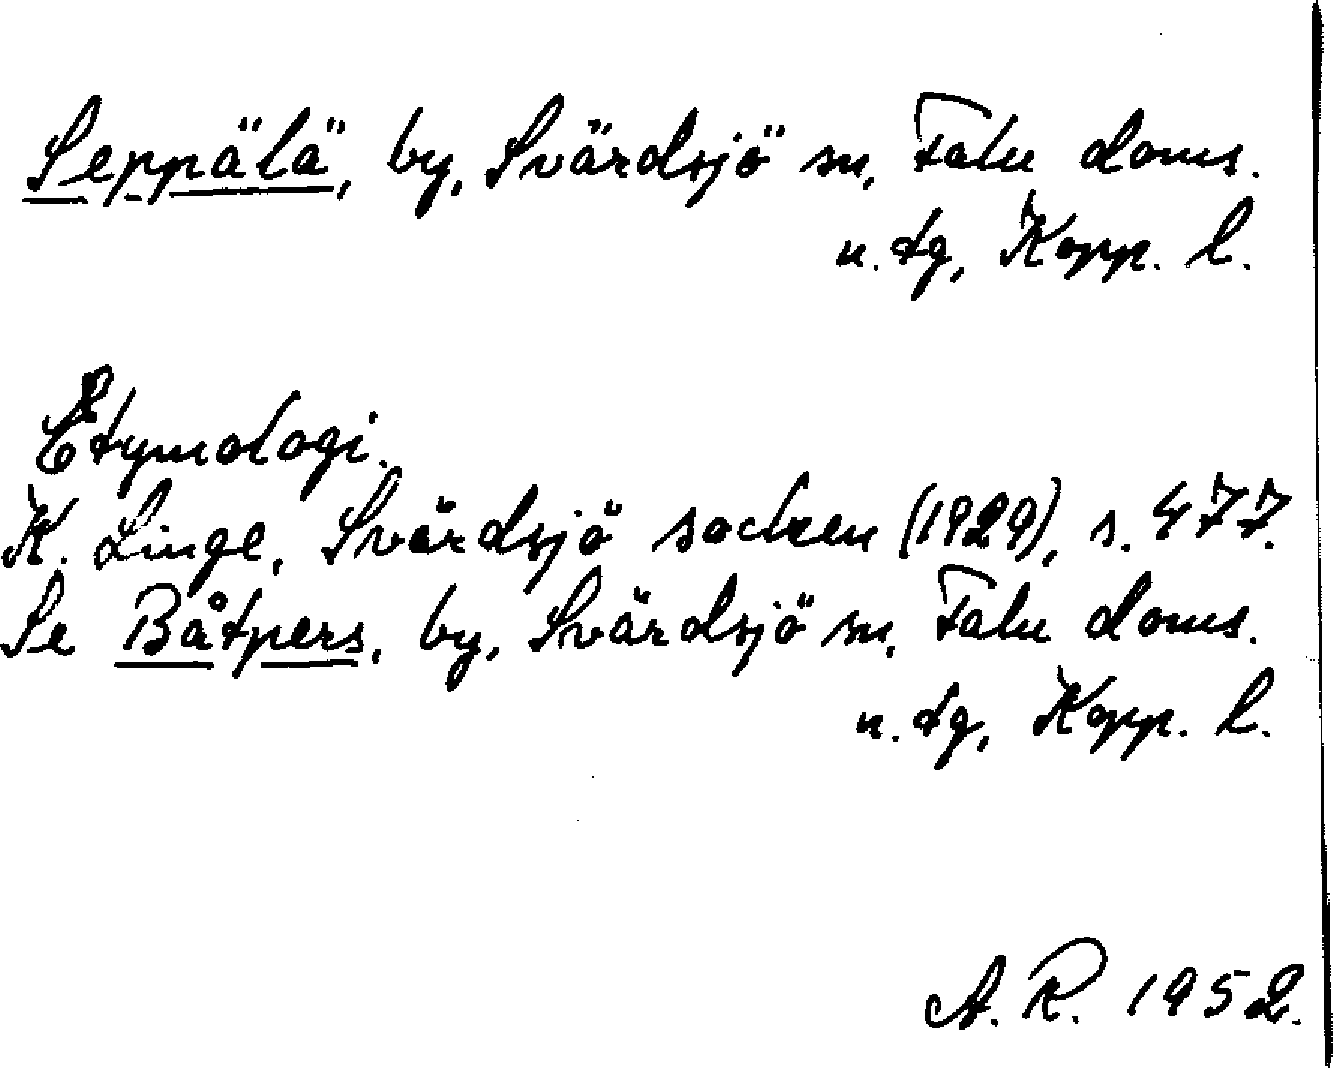 Seppälä, by, Svärdsjö sn, Falu doms.
n. tg, Kopp. l.
Etymologi.
K. Linge, Svärdsjö socken (1929), s. 477.
Se Båtpers, by, Svärdsjö sn, Falu doms.
n. tg, Kopp. l.
A. R. 1952.